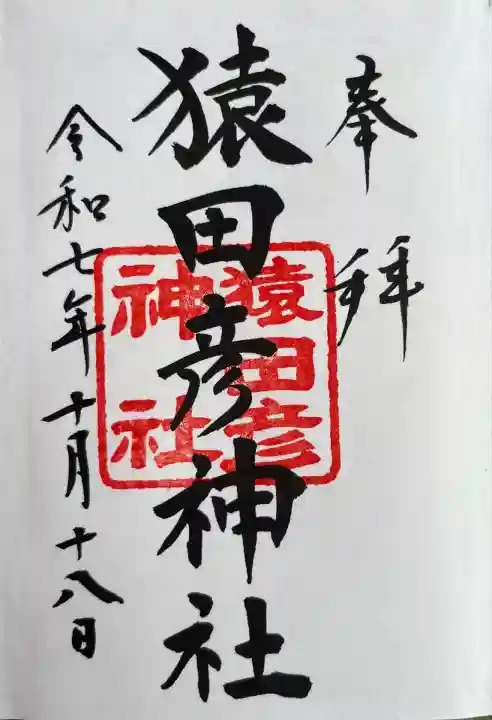 奉拜
猿田彦神社
猿田彦
神社
令和七年十月十八日